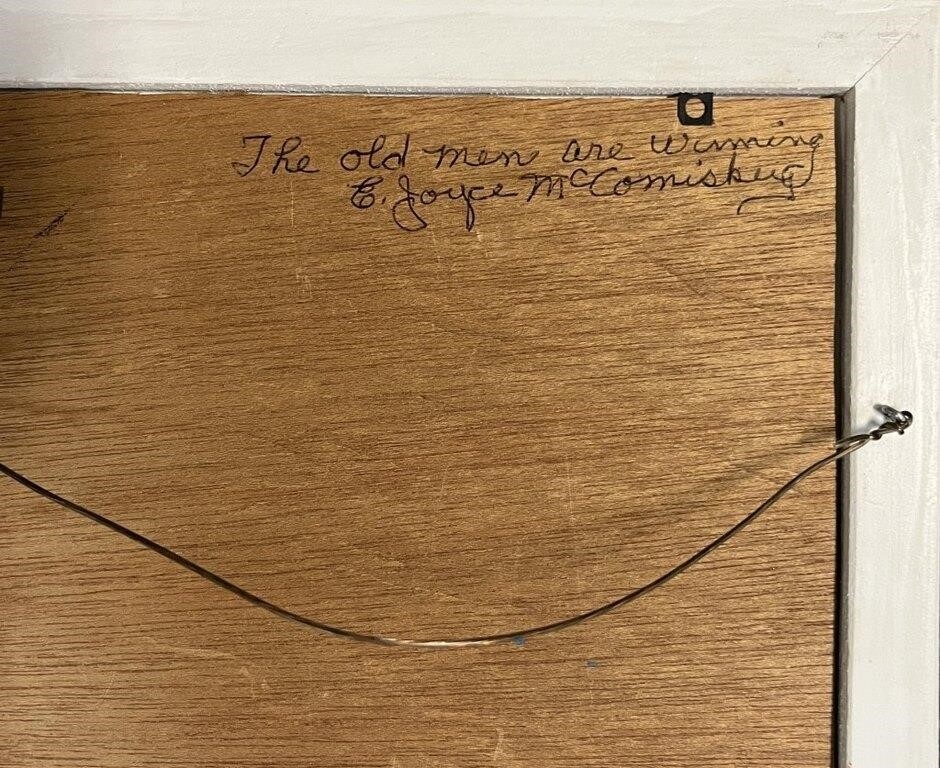 The old men are winning
E. Joyce McComiskey